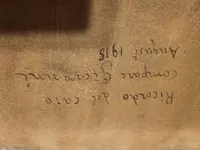 Ricordo del caro
compare Giovanni
August 1918